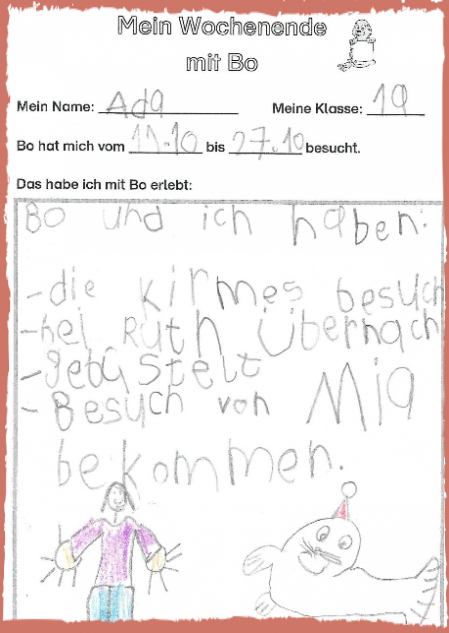 Mein Wochenende
mit Bo
Mein Name: Ada Meine Klasse: 1a
Bo hat mich vom 11.10 bis 27.10 besucht.
Das habe ich mit Bo erlebt:
Bo und ich haben:
-die Kirmes besuch
-bei Ruth Übernach
-gebastelt
-Besuch von Mia
bekommen.